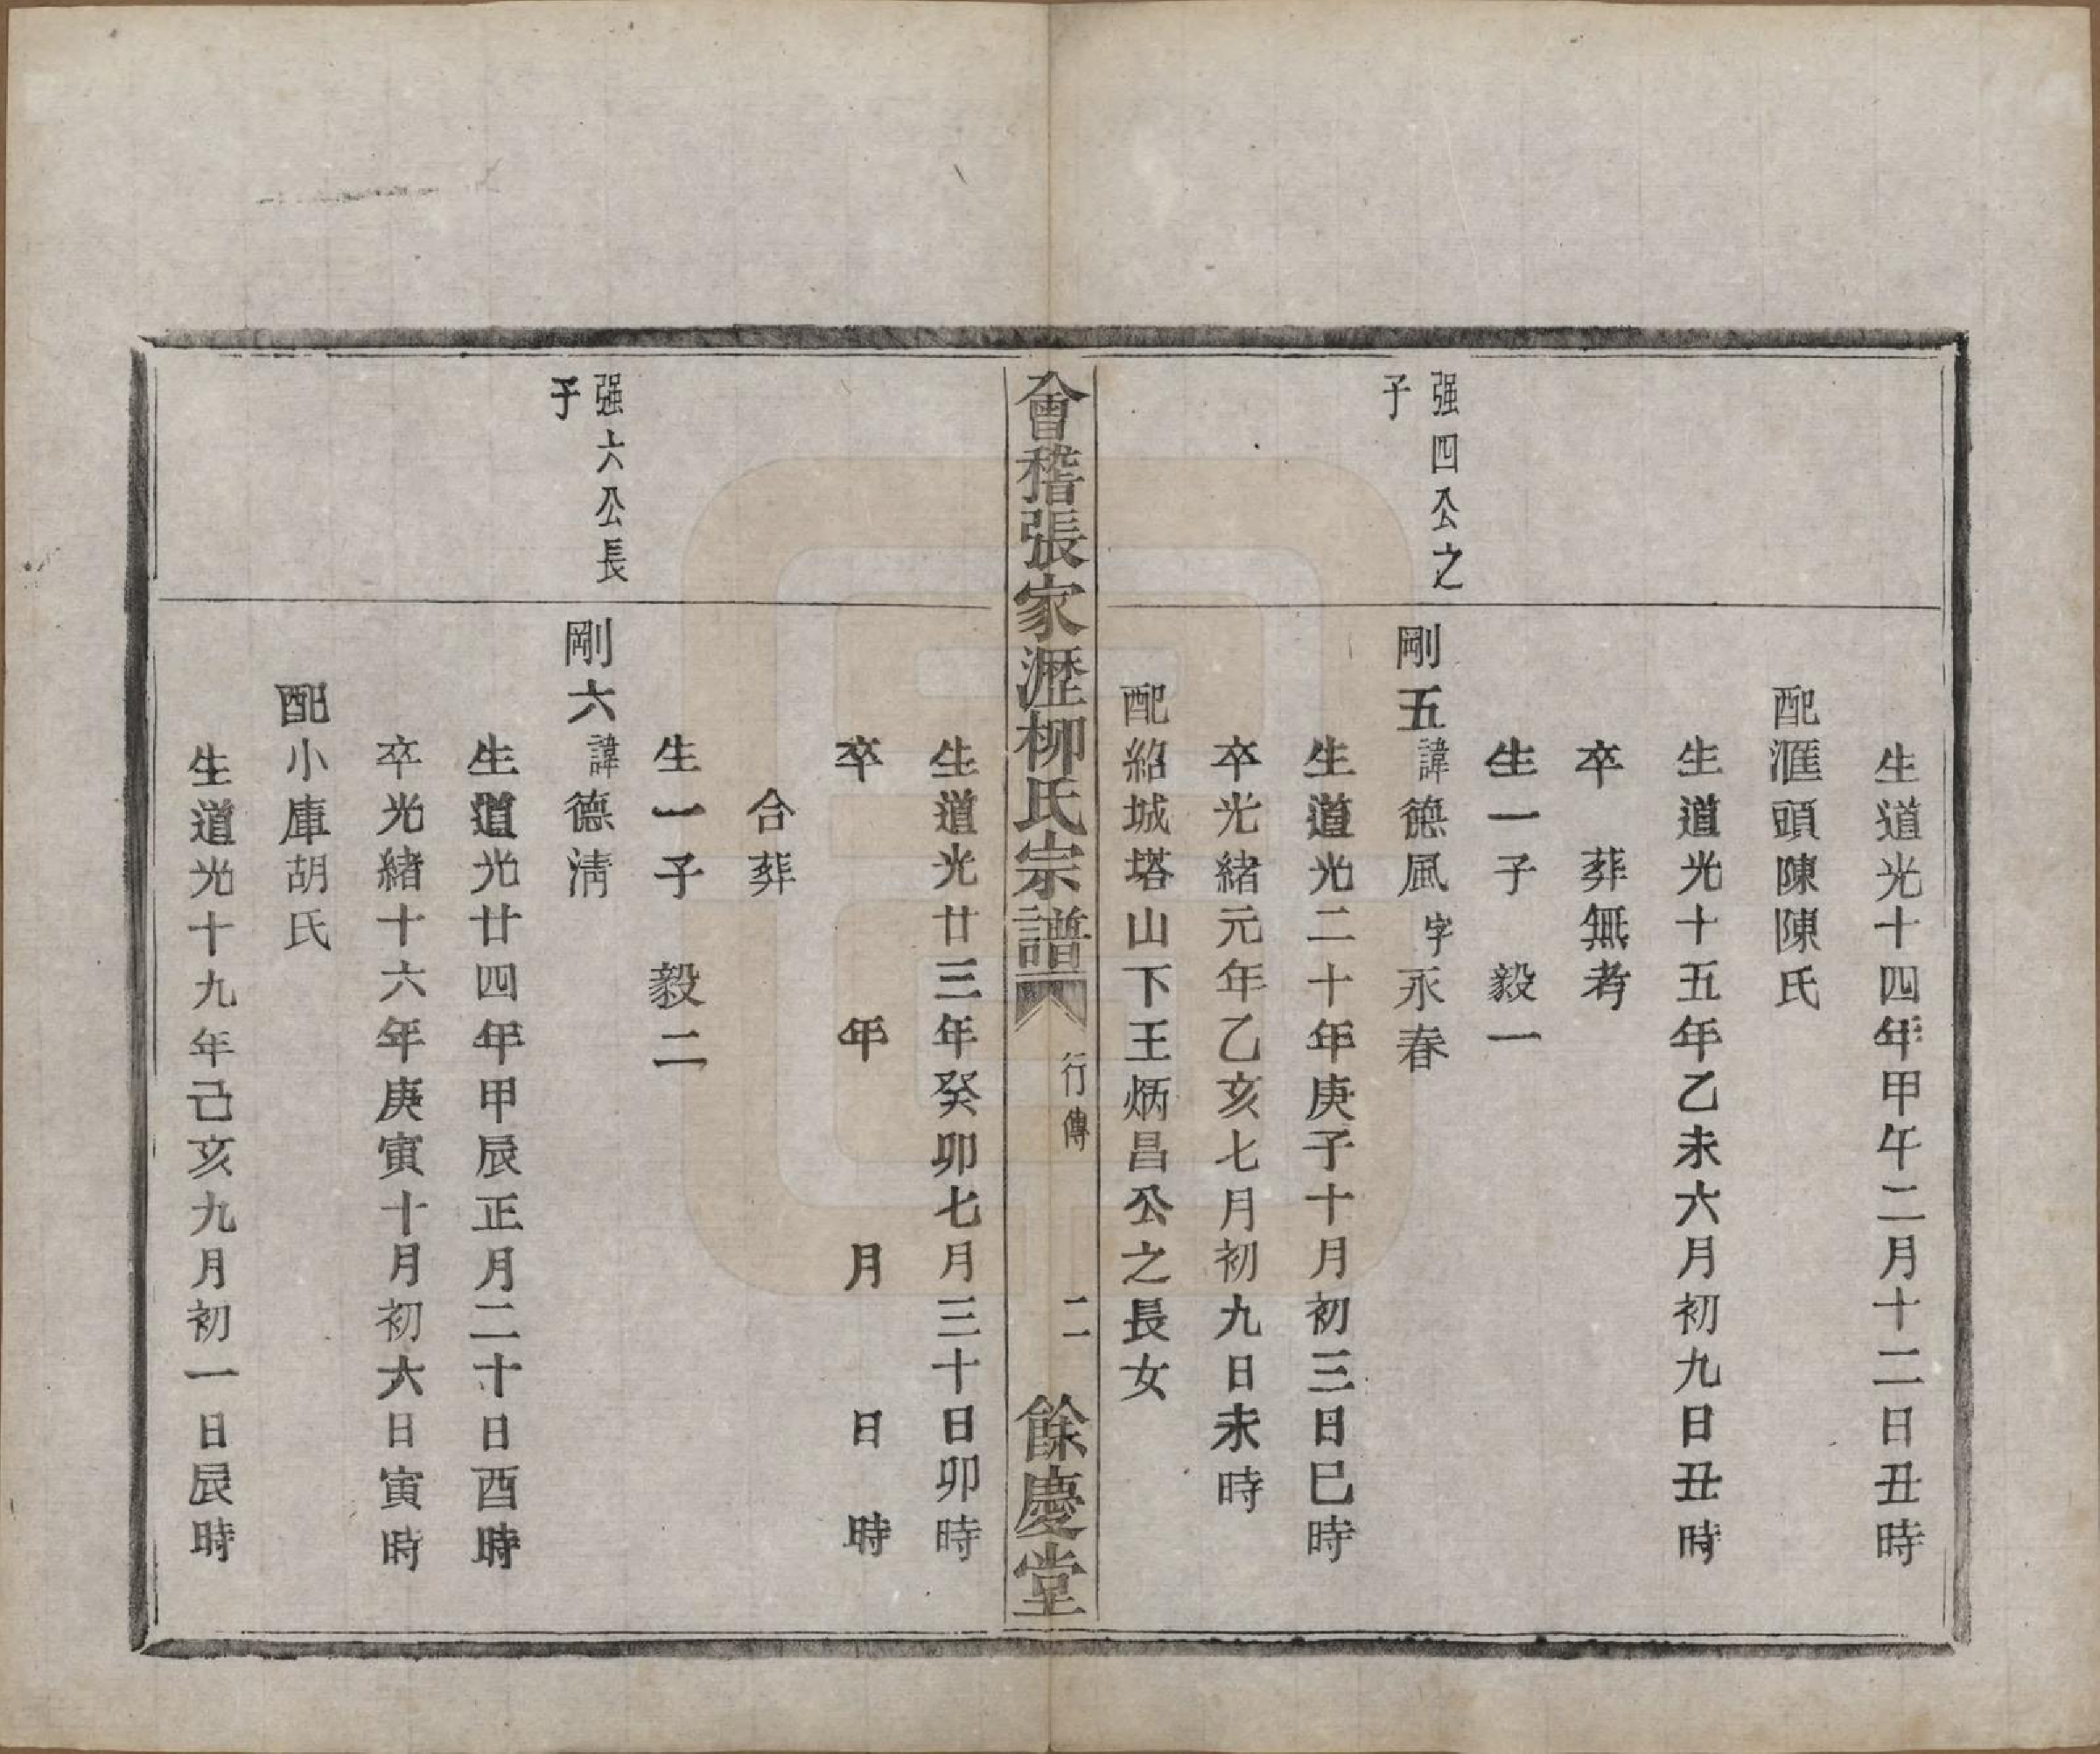 生道光十四年甲午二月十二日丑時
配滙頭陳陳氏
生道光十五年乙未六月初九日丑時
卒　葬無考
生一子　毅一
强四公之
子
剛五諱德風字永春
生道光二十年庚子十月初三日巳時
卒光緒元年乙亥七月初九日未時
配紹城塔山下王炳昌公之長女
會稽張家瀝柳氏宗譜　行傳　二　餘慶堂
生道光廿三年癸卯七月三十日卯時
卒　年　月　日　時
合葬
生一子　毅二
强六公長
子
剛六諱德清
生道光廿四年甲辰正月二十日酉時
卒光緒十六年庚寅十月初六日寅時
配小庫胡氏
生道光十九年己亥九月初一日辰時